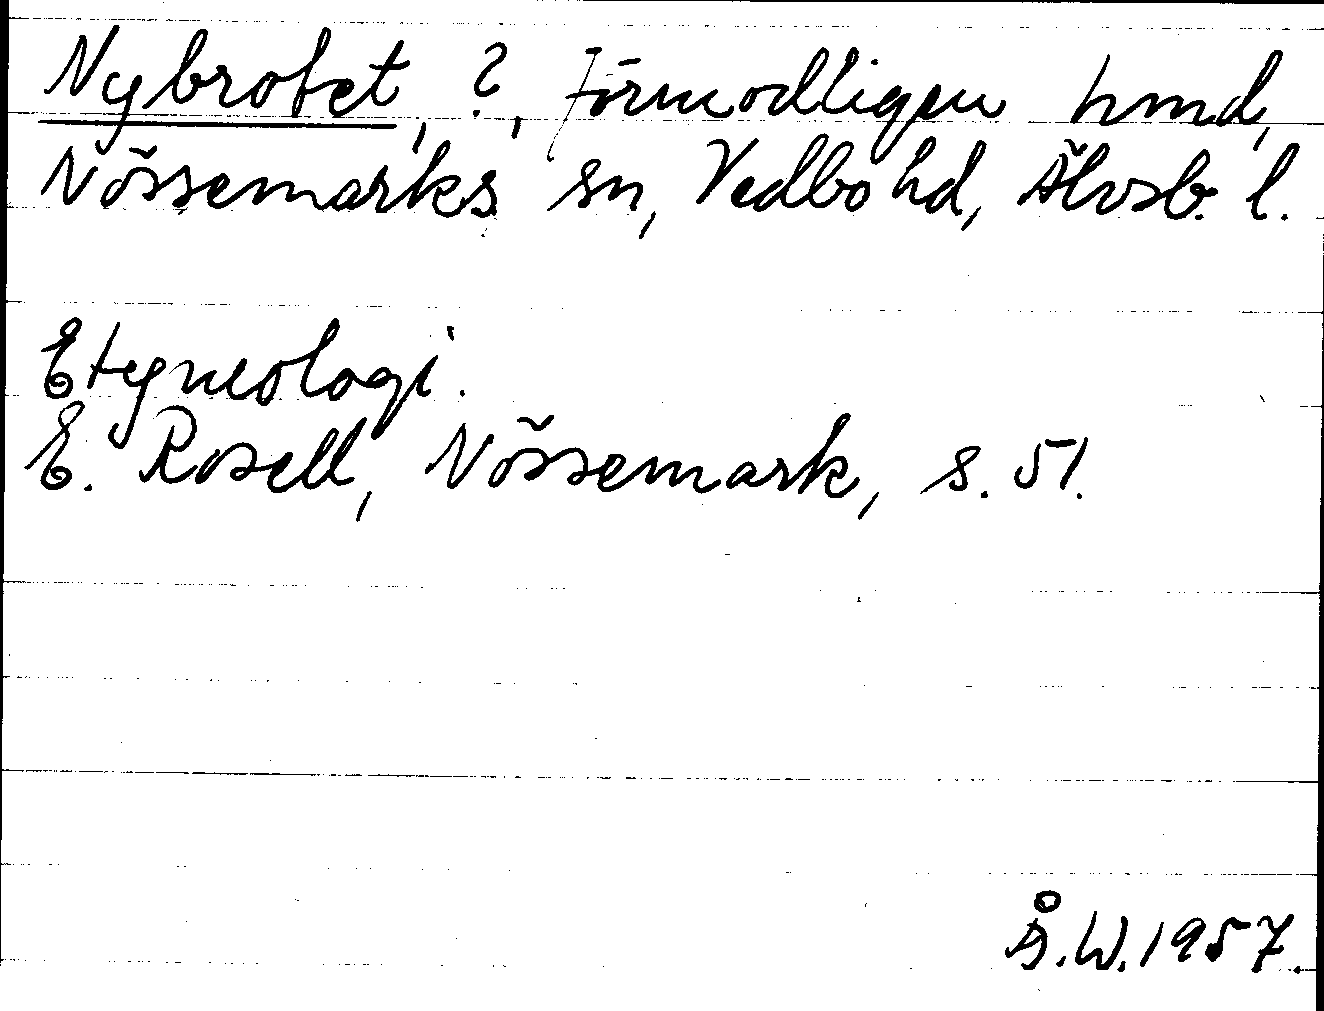 Nybrotet, ?, förmodligen hmd,
Nössemarks sn, Vedbo hd, Älvsb. l.
Etymologi.
E. Rosell, Nössemark, s. 51.
Å.W. 1957.